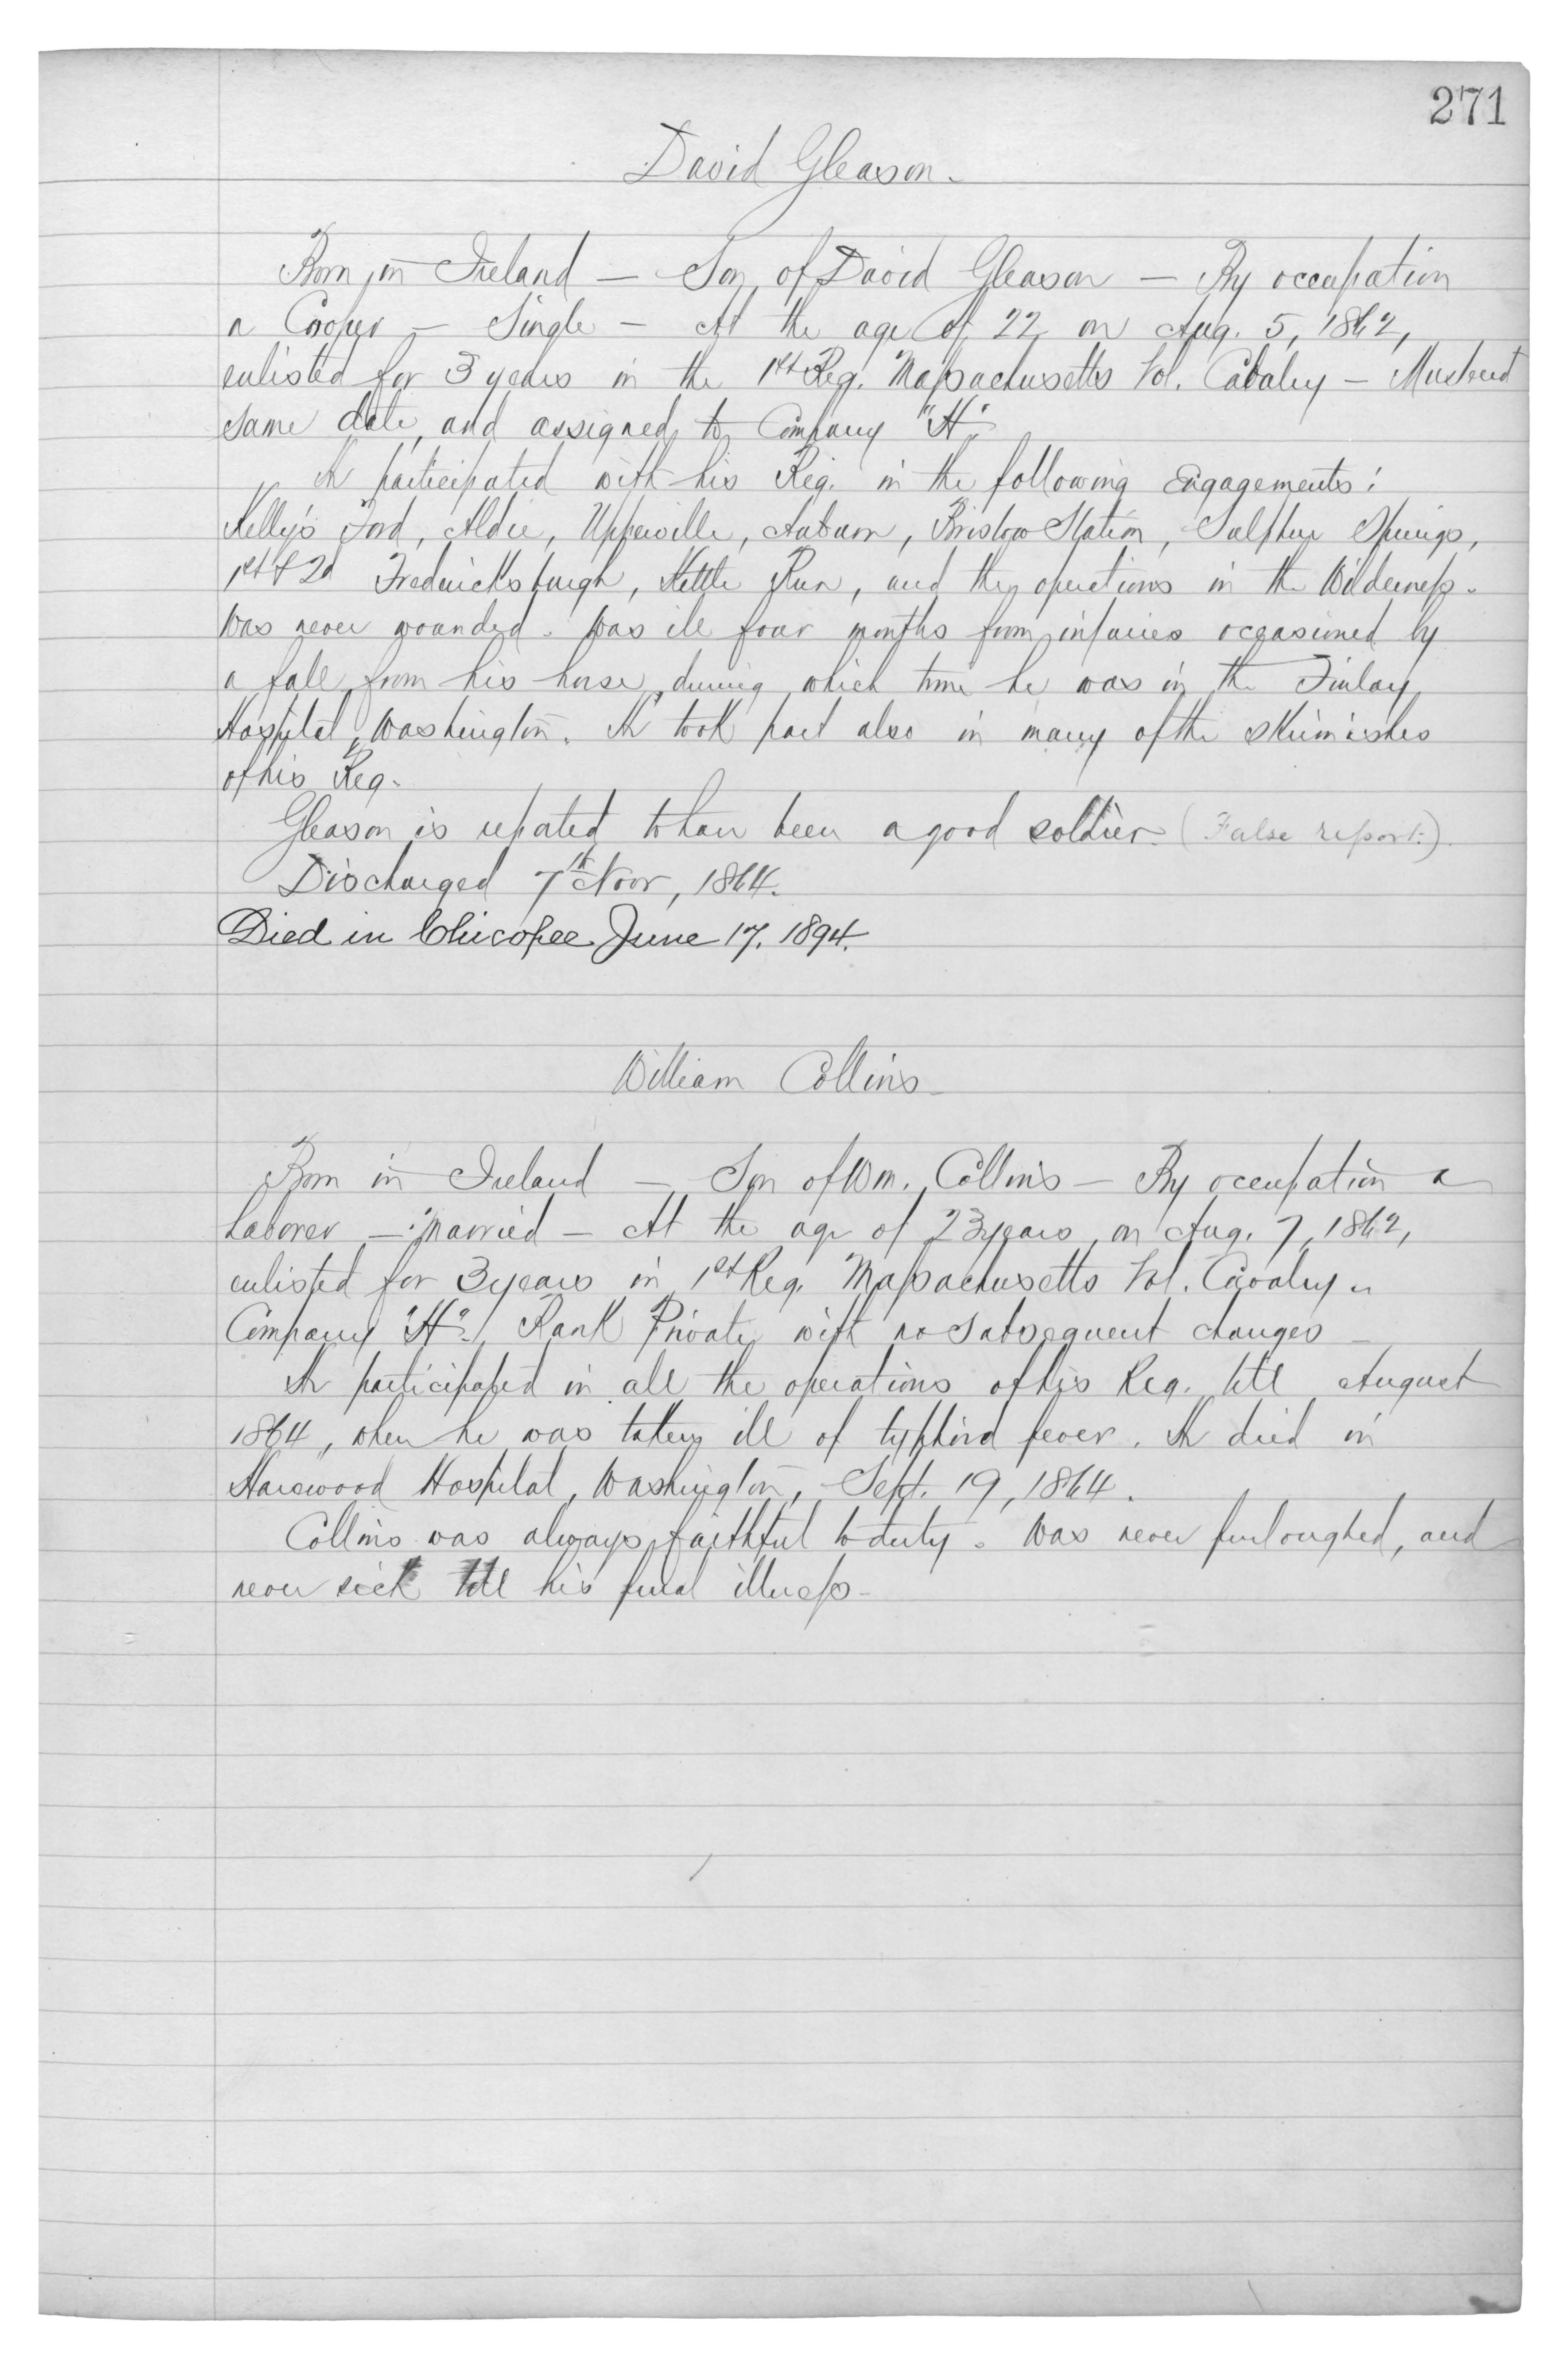 271
David Gleason.
Born in Ireland — Son of David Gleason — By occupation
a Cooper — Single — At the age of 22 on Aug. 5, 1862,
enlisted for 3 years in the 1st Reg. Massachusetts Vol. Cavalry — Mustered
same date, and assigned to Company "H".
He participated with his Reg. in the following Engagements:
Kelly's Ford, Aldie, Upperville, Auburn, Bristow Station, Sulphur Springs,
1st & 2d Fredericksburgh, Kettle Run, and the operations in the Wilderness.
Was never wounded. Was ill four months from injuries occasioned by
a fall from his horse, during which time he was in the Finlay
Hospital, Washington. He took part also in many of the skirmishes
of his Reg.
Gleason is reputed to have been a good soldier. (False report.)
Discharged 7th Nov, 1864.
Died in Chicopee June 17. 1894.
William Collins
Born in Ireland — Son of Wm. Collins — By occupation a
Laborer — Married — At the age of 23 years, on Aug. 7, 1862,
enlisted for 3 years in 1st Reg. Massachusetts Vol. Cavalry.
Company "H". Rank Private with no subsequent changes —
He participated in all the operations of his Reg. till August
1864, when he was taken ill of typhoid fever. He died in
Harewood Hospital, Washington, Sept. 19, 1864.
Collins was always faithful to duty. Was never furloughed, and
never sick till his final illness —